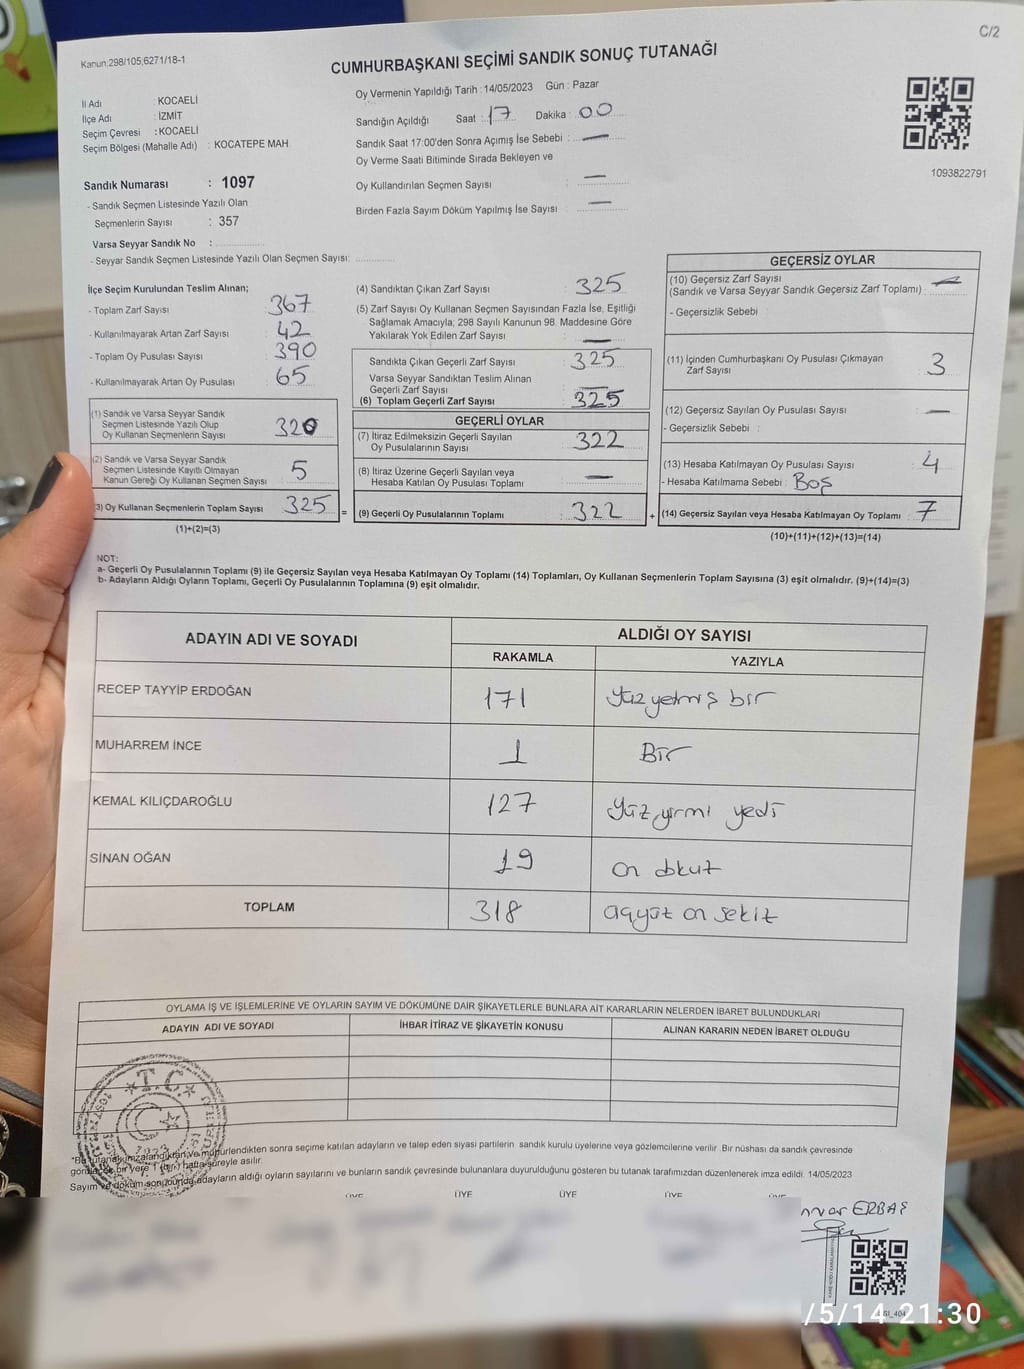 C/2
Kanun:298/105;6271/18-1
CUMHURBAŞKANI SEÇİMİ SANDIK SONUÇ TUTANAĞI
Oy Vermenin Yapıldığı Tarih : 14/05/2023 Gün : Pazar
İl Adı : KOCAELİ
İlçe Adı : İZMİT
Seçim Çevresi : KOCAELİ
Seçim Bölgesi (Mahalle Adı) : KOCATEPE MAH.
Sandığın Açıldığı Saat : 17 Dakika : 00
Sandık Saat 17:00'den Sonra Açımış İse Sebebi : —
Oy Verme Saati Bitiminde Sırada Bekleyen ve
Oy Kullandırılan Seçmen Sayısı : —
Birden Fazla Sayım Döküm Yapılmış İse Sayısı : —
1093822791
Sandık Numarası : 1097
- Sandık Seçmen Listesinde Yazılı Olan
Seçmenlerin Sayısı : 357
Varsa Seyyar Sandık No :
- Seyyar Sandık Seçmen Listesinde Yazılı Olan Seçmen Sayısı:
İlçe Seçim Kurulundan Teslim Alınan;
- Toplam Zarf Sayısı : 367
- Kullanılmayarak Artan Zarf Sayısı : 42
- Toplam Oy Pusulası Sayısı : 390
- Kullanılmayarak Artan Oy Pusulası : 65
(1) Sandık ve Varsa Seyyar Sandık
Seçmen Listesinde Yazılı Olup
Oy Kullanan Seçmenlerin Sayısı : 320
(2) Sandık ve Varsa Seyyar Sandık
Seçmen Listesinde Kayıtlı Olmayan
Kanun Gereği Oy Kullanan Seçmen Sayısı : 5
(3) Oy Kullanan Seçmenlerin Toplam Sayısı : 325 =
(1)+(2)=(3)
(4) Sandıktan Çıkan Zarf Sayısı : 325
(5) Zarf Sayısı Oy Kullanan Seçmen Sayısından Fazla İse, Eşitliği
Sağlamak Amacıyla, 298 Sayılı Kanunun 98. Maddesine Göre
Yakılarak Yok Edilen Zarf Sayısı : —
Sandıkta Çıkan Geçerli Zarf Sayısı : 325
Varsa Seyyar Sandıktan Teslim Alınan
Geçerli Zarf Sayısı : —
(6) Toplam Geçerli Zarf Sayısı : 325
GEÇERLİ OYLAR
(7) İtiraz Edilmeksizin Geçerli Sayılan
Oy Pusulalarının Sayısı : 322
(8) İtiraz Üzerine Geçerli Sayılan veya
Hesaba Katılan Oy Pusulası Toplamı : —
(9) Geçerli Oy Pusulalarının Toplamı : 322 +
GEÇERSİZ OYLAR
(10) Geçersiz Zarf Sayısı
(Sandık ve Varsa Seyyar Sandık Geçersiz Zarf Toplamı) : —
- Geçersizlik Sebebi :
(11) İçinden Cumhurbaşkanı Oy Pusulası Çıkmayan
Zarf Sayısı : 3
(12) Geçersiz Sayılan Oy Pusulası Sayısı : —
- Geçersizlik Sebebi :
(13) Hesaba Katılmayan Oy Pusulası Sayısı : 4
- Hesaba Katılmama Sebebi : Boş
(14) Geçersiz Sayılan veya Hesaba Katılmayan Oy Toplamı : 7
(10)+(11)+(12)+(13)=(14)
NOT:
a- Geçerli Oy Pusulalarının Toplamı (9) ile Geçersiz Sayılan veya Hesaba Katılmayan Oy Toplamı (14) Toplamları, Oy Kullanan Seçmenlerin Toplam Sayısına (3) eşit olmalıdır. (9)+(14)=(3)
b- Adayların Aldığı Oyların Toplamı, Geçerli Oy Pusulalarının Toplamına (9) eşit olmalıdır.
ADAYIN ADI VE SOYADI ALDIĞI OY SAYISI
RAKAMLA YAZIYLA
RECEP TAYYİP ERDOĞAN 171 Yüz yetmiş bir
MUHARREM İNCE 1 Bir
KEMAL KILIÇDAROĞLU 127 Yüz yirmi yedi
SİNAN OĞAN 19 on dokuz
TOPLAM 318 üçyüz on sekiz
OYLAMA İŞ VE İŞLEMLERİNE VE OYLARIN SAYIM VE DÖKÜMÜNE DAİR ŞİKAYETLERLE BUNLARA AİT KARARLARIN NELERDEN İBARET BULUNDUKLARI
ADAYIN ADI VE SOYADI İHBAR İTİRAZ VE ŞİKAYETİN KONUSU ALINAN KARARIN NEDEN İBARET OLDUĞU
T.C.
tutanak imzalandıktan ve mühürlendikten sonra seçime katılan adayların ve talep eden siyasi partilerin sandık kurulu üyelerine veya gözlemcilerine verilir. Bir nüshası da sandık çevresinde
bir yere 1 (bir) hafta süreyle asılır.
Sayım ve döküm sonucunda adayların aldığı oyların sayılarını ve bunların sandık çevresinde bulunanlara duyurulduğunu gösteren bu tutanak tarafımızdan düzenlenerek imza edildi. 14/05/2023
ÜYE ÜYE ÜYE ÜYE
ERBAŞ
/5/14 21:30